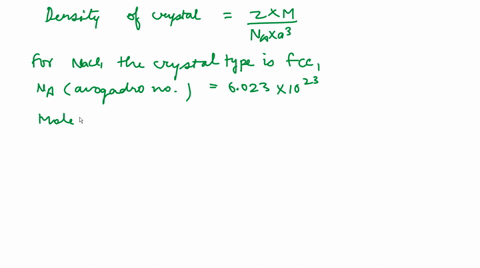 Density of crystal = Z×M / NA×a³
For NaCl, the crystal type is fcc,
NA (avogadro no.) = 6.023 × 10²³
Mole